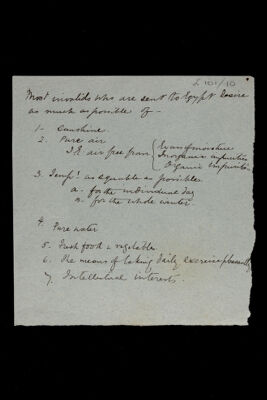 L 101/10
Most invalids who are sent to Egypt desire
as much as possible of -
1- Sunshine.
2. Pure air
I.E. air free from { Sand & moisture
Inorganic impurities
Organic impurities
3. Temp! as equable as possible
a. for the individual day
b. for the whole winter.
4. Pure water
5. Fresh food & vegetable
6. The means of taking daily exercise pleasantly
7. Intellectual interests.